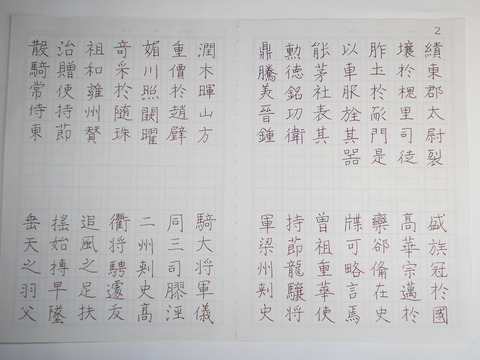 2
績東郡太尉裂
壤於槐里司徒
胙土於耏門是
以車服旌其器
能茅社表其
勲德銘功衛
鼎騰美晉鍾
盛族冠於國
髙華宗邁於
欒郤俻在史
牒可略言焉
曾祖重華使
持節龍驤將
軍梁州刾史
潤木暉山方
重價於趙璧
媚川照闕曜
竒采於随珠
祖和雍州賛
治贈使持節
散騎常侍東
騎大将軍儀
同三司膠涇
二州刾史髙
衢将騁遽友
追風之足扶
摇始摶早墜
垂天之羽父